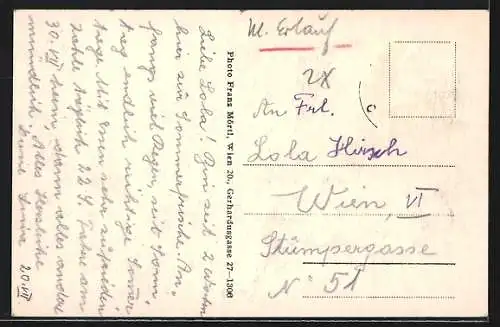 Liebe Lola! Bin seit 2 Wochen
hier zur Sommerfrische. An-
fangs viel Regen, seit Sonn-
tag endlich richtige Sommer
tage. Mit Essen sehr zufrieden
Zahle täglich 22 S. Fahre am
30. VII heim, dann alles andere
mündlich. Alles Herzliche
Deine
20. VII
Photo Franz Mörtl, Wien 20., Gerhardusgasse 27–1306
M. Erlauf
2X
An Frl.
Lola Hirsch
Wien, VI
Stumpergasse
N° 51